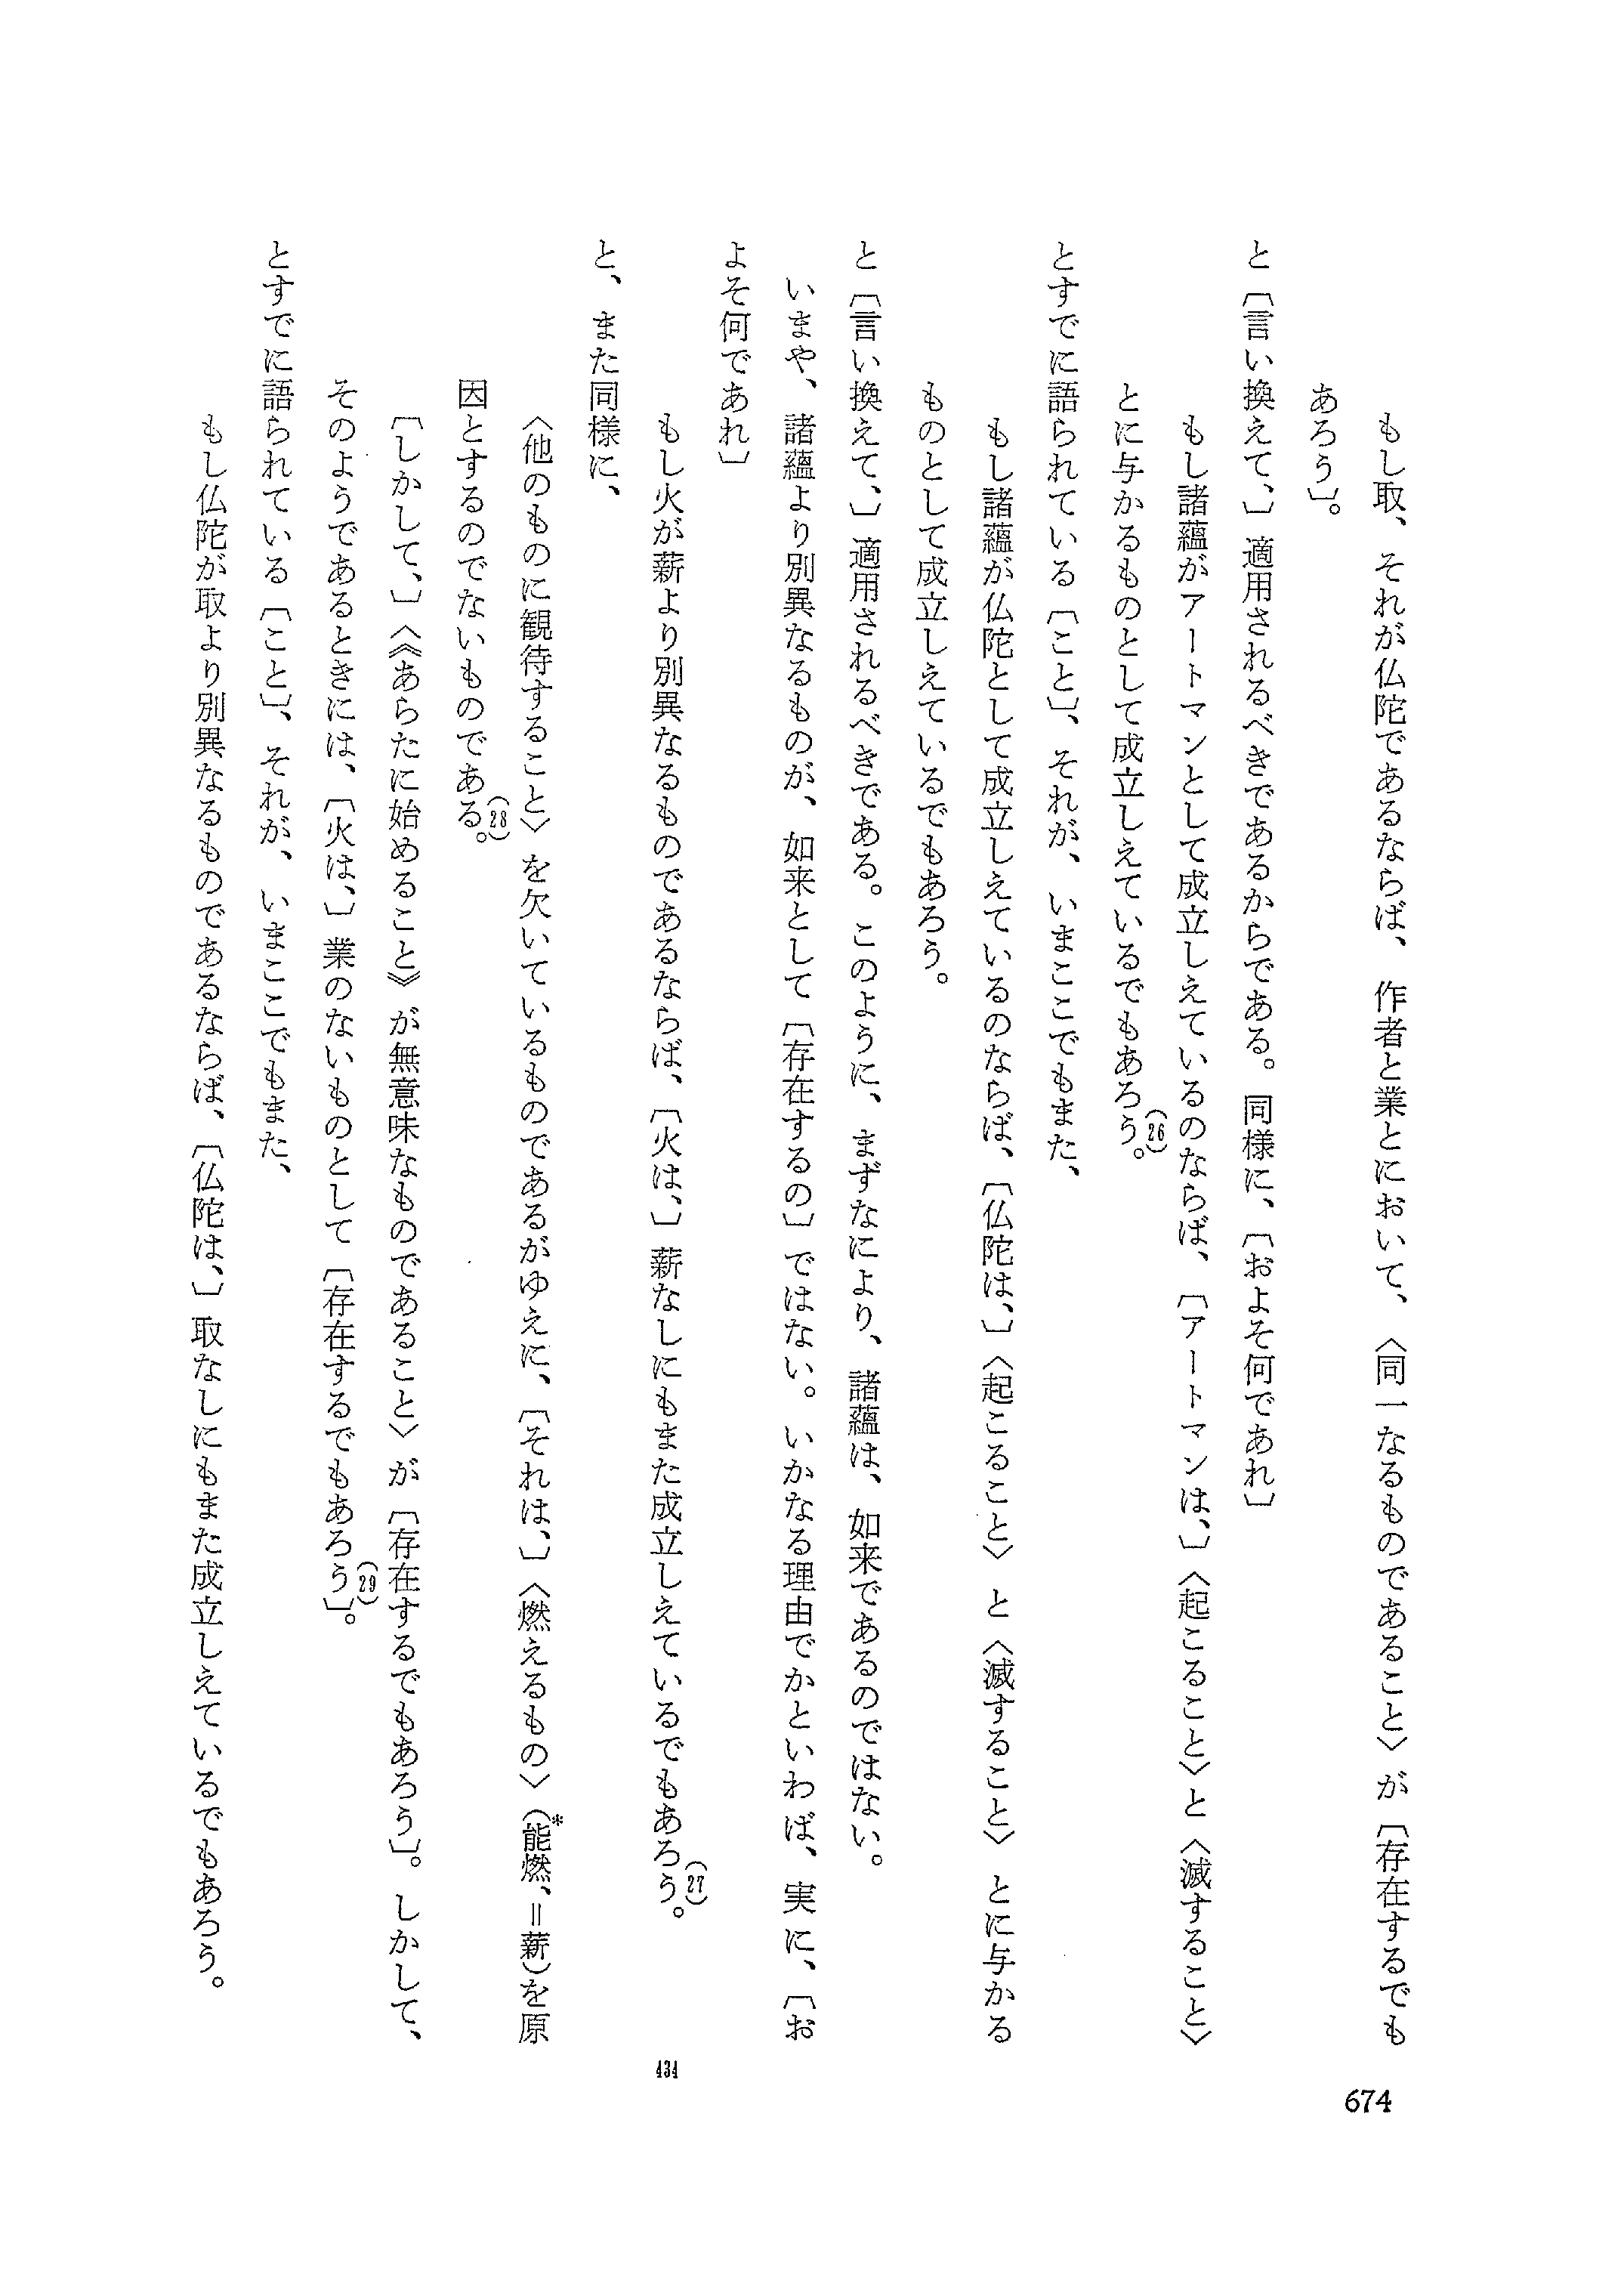 もし取、それが仏陀であるならば、作者と業とにおいて、〈同一なるものであること〉が〔存在するでも
あろう〕。
と〔言い換えて、〕適用されるべきであるからである。同様に、〔およそ何であれ〕
もし諸蘊がアートマンとして成立しえているのならば、〔アートマンは、〕〈起こること〉と〈滅すること〉
とに与かるものとして成立しえているでもあろう。(26)
とすでに語られている〔こと〕、それが、いまここでもまた、
もし諸蘊が仏陀として成立しえているのならば、〔仏陀は、〕〈起こること〉と〈滅すること〉とに与かる
ものとして成立しえているでもあろう。
と〔言い換えて、〕適用されるべきである。このように、まずなにより、諸蘊は、如来であるのではない。
いまや、諸蘊より別異なるものが、如来として〔存在するの〕ではない。いかなる理由でかといわば、実に、〔お
よそ何であれ〕
もし火が薪より別異なるものであるならば、〔火は、〕薪なしにもまた成立しえているでもあろう。(27)
と、また同様に、
〈他のものに観待すること〉を欠いているものであるがゆえに、〔それは、〕〈燃えるもの〉(能燃、＝薪)*を原
因とするのでないものである。(28)
〔しかして、〕《あらたに始めること》が無意味なものであること〉が〔存在するでもあろう〕。しかして、
そのようであるときには、〔火は、〕業のないものとして〔存在するでもあろう〕。(29)
とすでに語られている〔こと〕、それが、いまここでもまた、
もし仏陀が取より別異なるものであるならば、〔仏陀は、〕取なしにもまた成立しえているでもあろう。
434
674